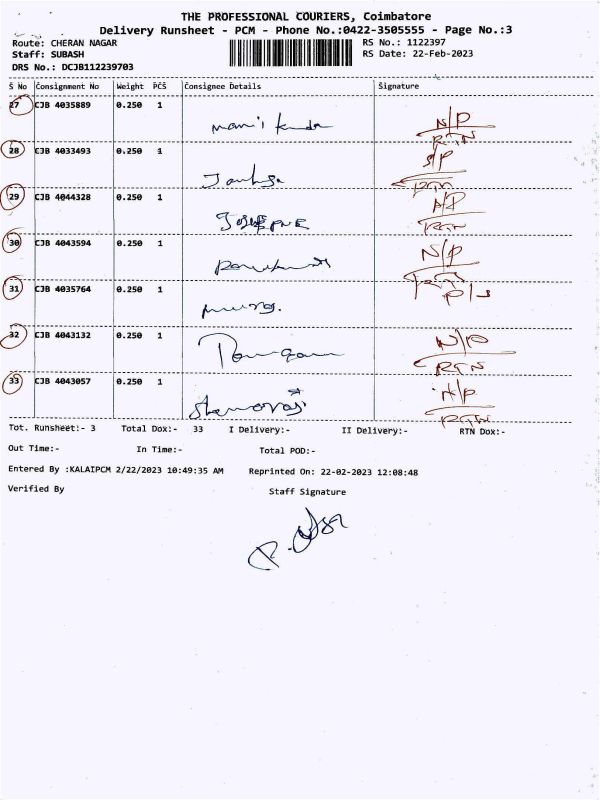 THE PROFESSIONAL COURIERS, Coimbatore
Delivery Runsheet - PCM - Phone No.:0422-3505555 - Page No.:3
Route: CHERAN NAGAR RS No.: 1122397
Staff: SUBASH RS Date: 22-Feb-2023
DRS No.: DCJB112239703
S No Consignment No Weight PCS Consignee Details Signature
27 CJB 4035889 0.250 1 N/P
RTN
28 CJB 4033493 0.250 1 S/P
RTN
29 CJB 4044328 0.250 1 N/P
RTN
30 CJB 4043594 0.250 1 N/P
RTN
31 CJB 4035764 0.250 1 P/S
32 CJB 4043132 0.250 1 N/P
RTN
33 CJB 4043057 0.250 1 N/P
RTN
Tot. Runsheet:- 3 Total Dox:- 33 I Delivery:- II Delivery:- RTN Dox:-
Out Time:- In Time:- Total POD:-
Entered By :KALAIPCM 2/22/2023 10:49:35 AM Reprinted On: 22-02-2023 12:08:48
Verified By Staff Signature